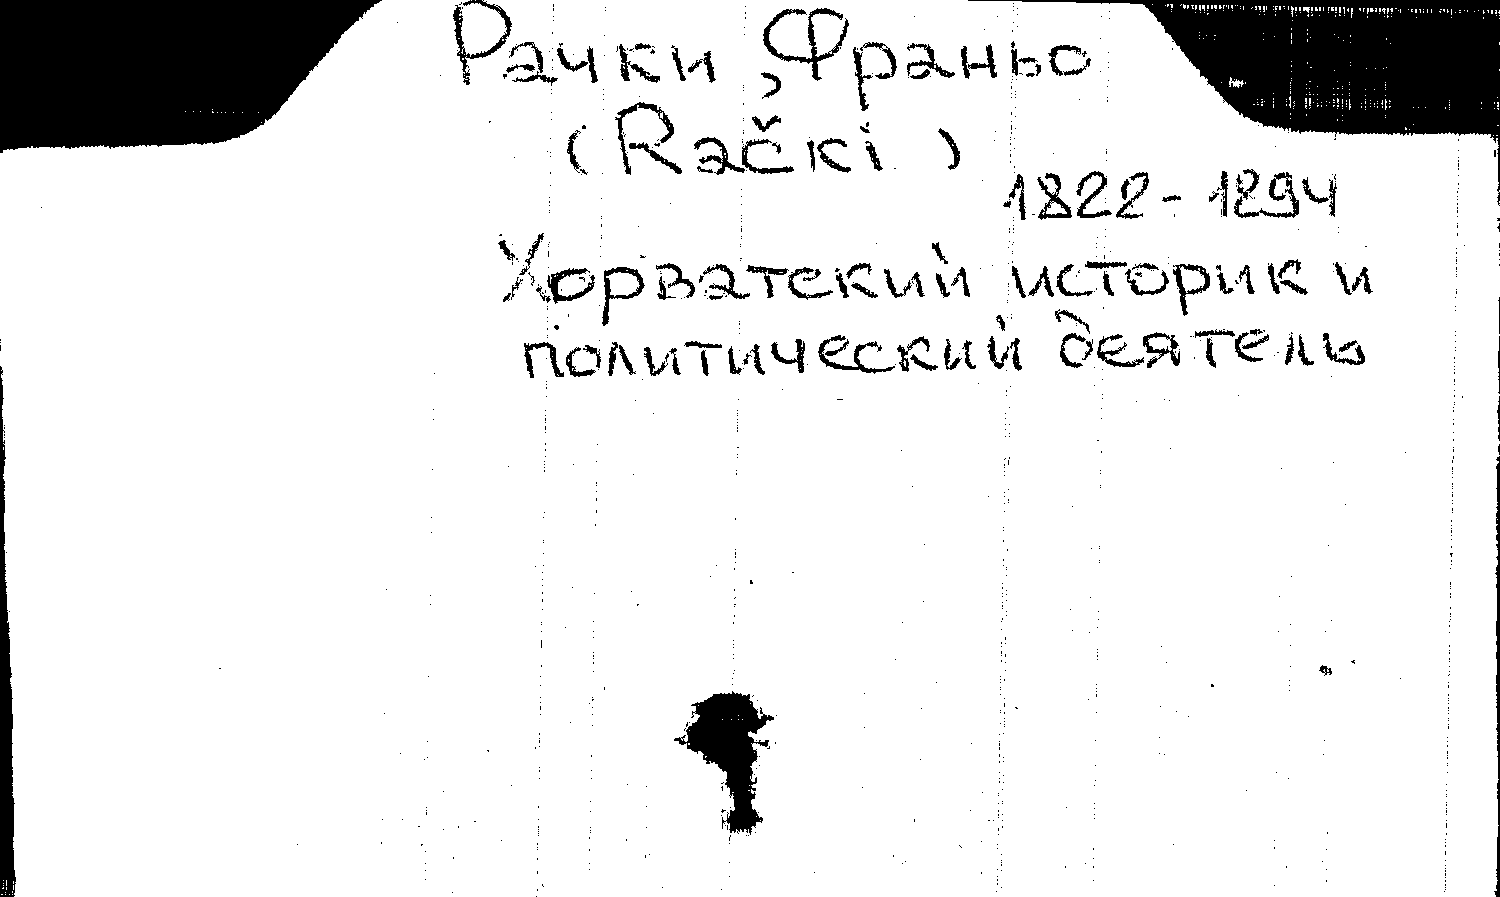 Рачки, Франьо
(Rački)
1822-1894
Хорватский историк и
политический деятель